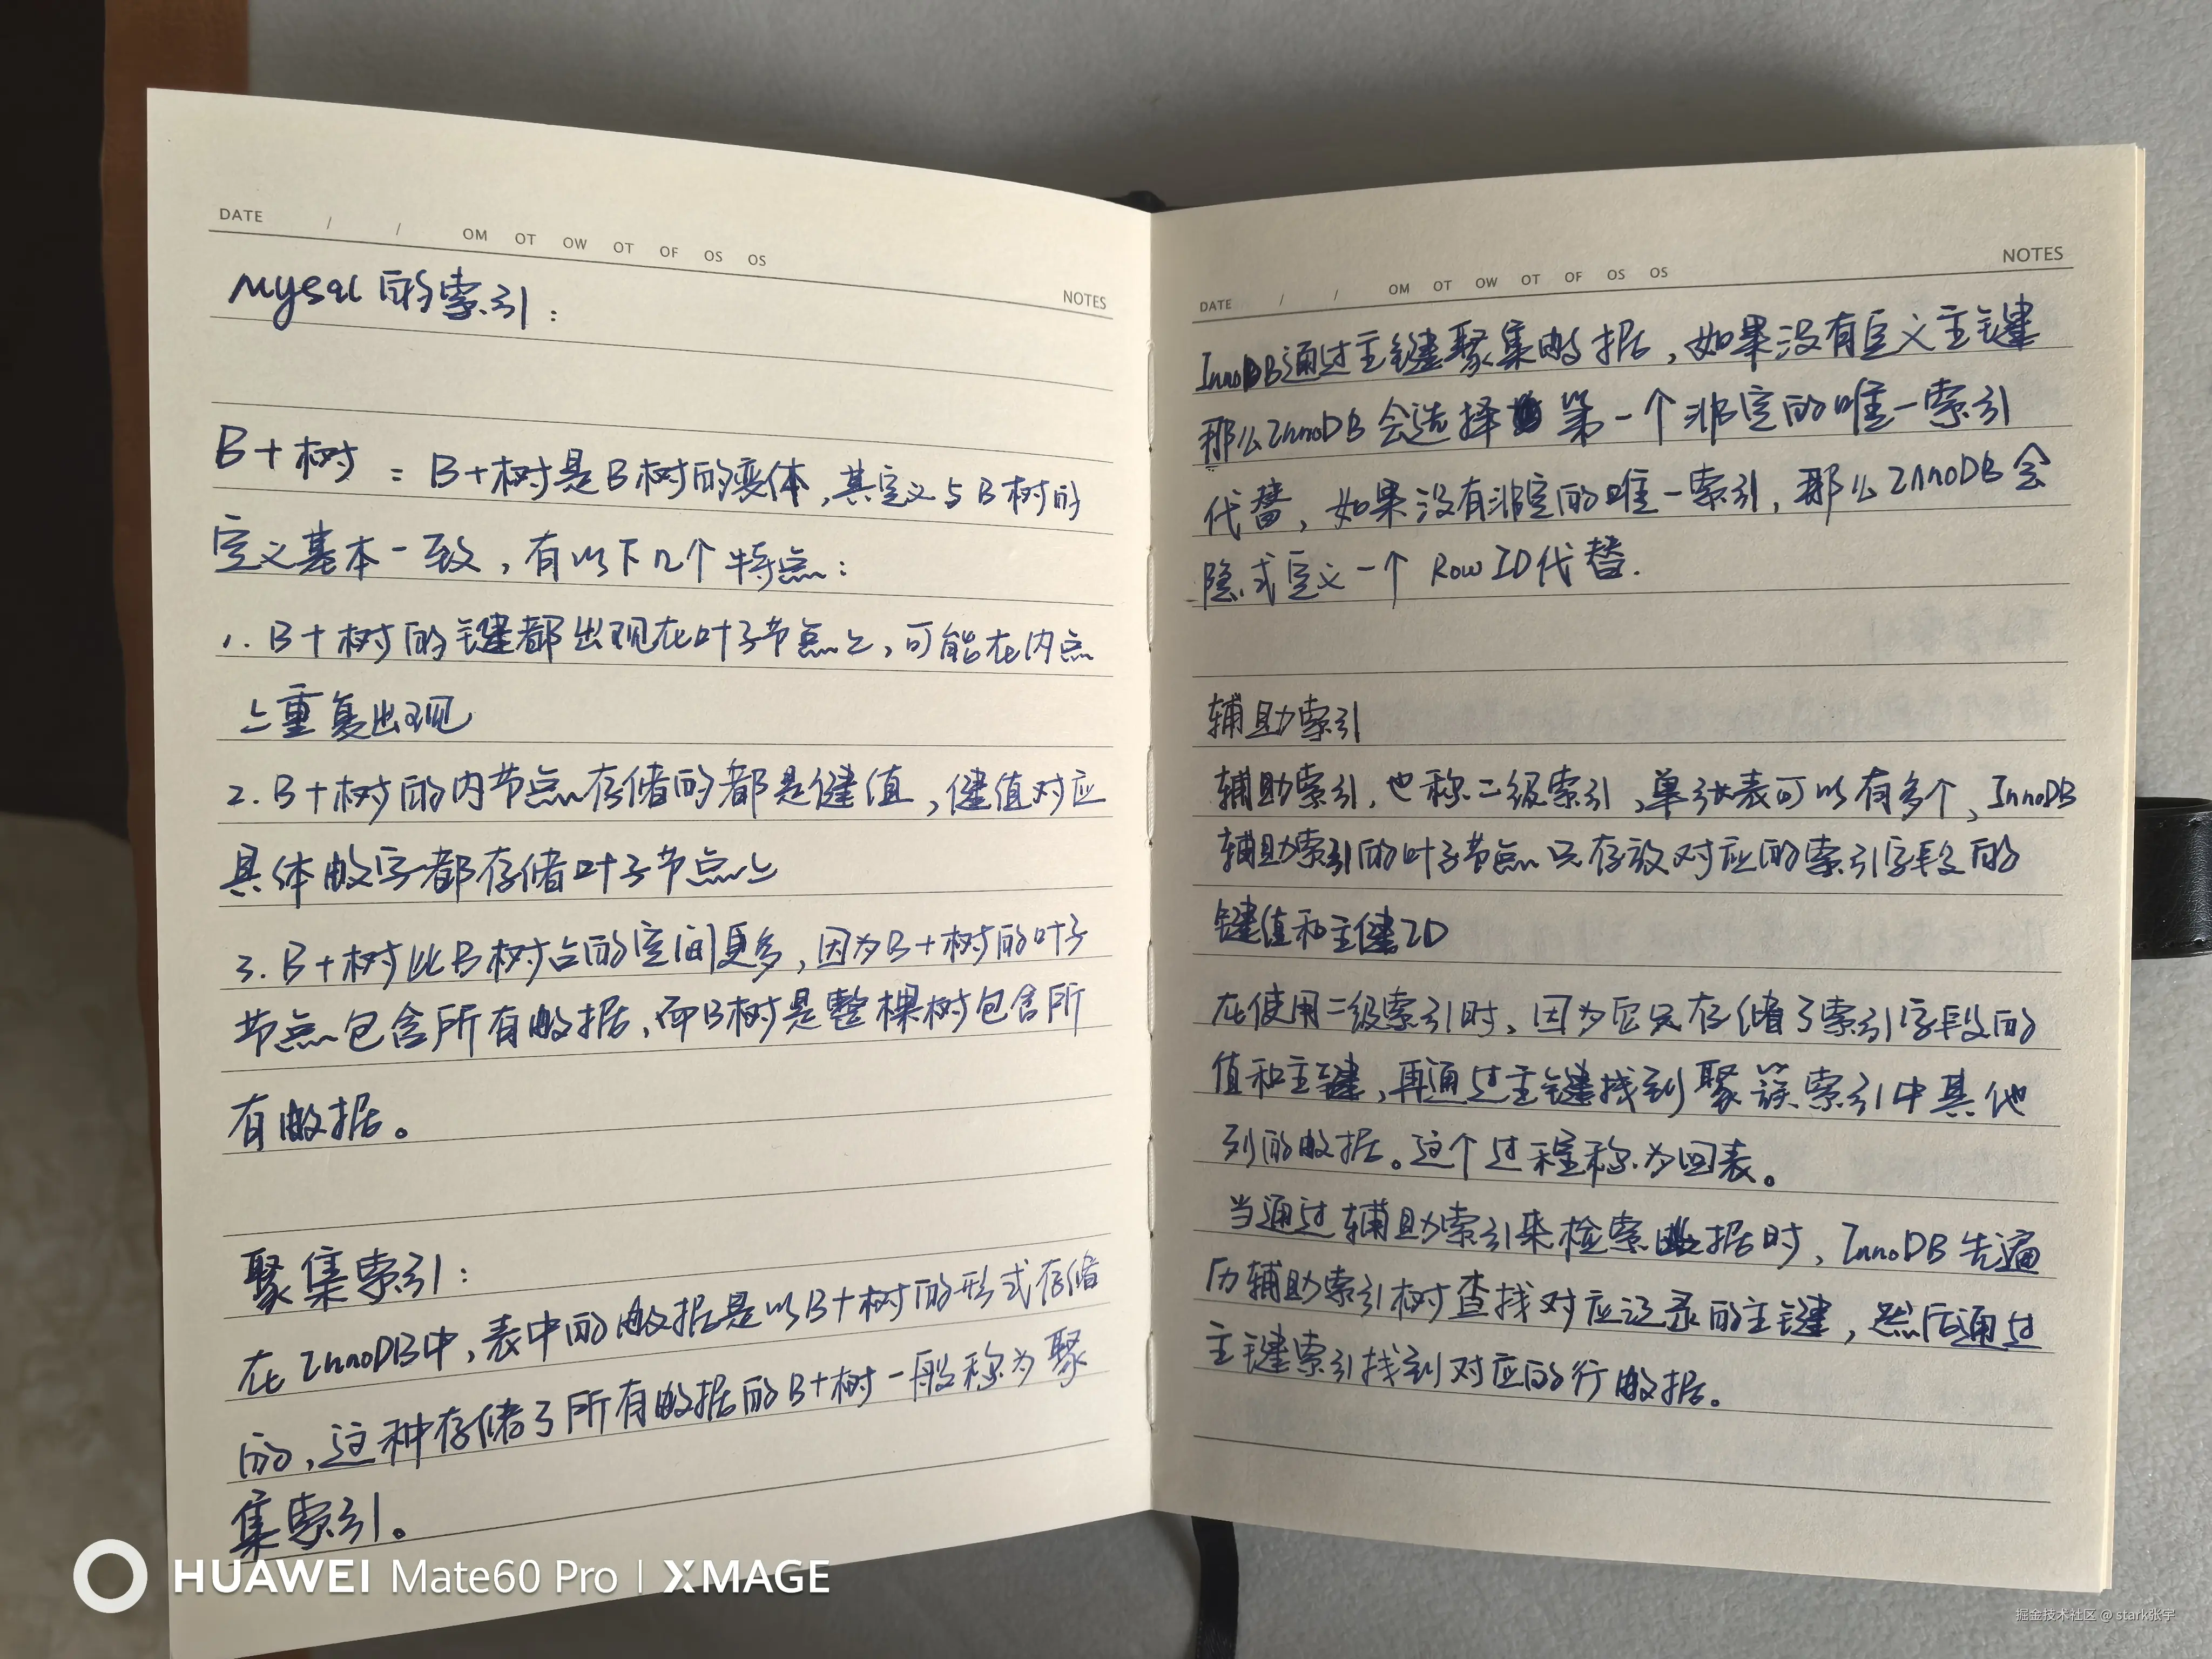 DATE / / OM OT OW OT OF OS OS
NOTES
Mysql的索引：
B+树：B+树是B树的变体，其定义与B树的
定义基本一致，有以下几个特点：
1. B+树的键都出现在叶子节点上，可能在内点
上重复出现
2. B+树的内节点存储的都是健值，健值对应
具体数字都存储叶子节点上
3. B+树比B树占的空间更多，因为B+树的叶子
节点包含所有数据，而B树是整棵树包含所
有数据。
聚集索引：
在InnoDB中，表中的数据是以B+树的形式存储
的，这种存储了所有数据的B+树一般称为聚
集索引。
DATE / / OM OT OW OT OF OS OS
NOTES
InnoDB通过主键聚集数据，如果没有定义主键
那么InnoDB会选择第一个非空的唯一索引
代替，如果没有非空的唯一索引，那么InnoDB会
隐式定义一个Row ID代替.
辅助索引
辅助索引，也称二级索引，单张表可以有多个，InnoDB
辅助索引的叶子节点只存放对应的索引字段的
键值和主健ID
在使用二级索引时，因为它只存储了索引字段的
值和主键，再通过主键找到聚簇索引中其他
列的数据。这个过程称为回表。
当通过辅助索引来检索数据时，InnoDB先遍
历辅助索引树查找对应记录的主键，然后通过
主键索引找到对应的行数据。
HUAWEI Mate60 Pro | XMAGE
掘金技术社区 @ stark张宇